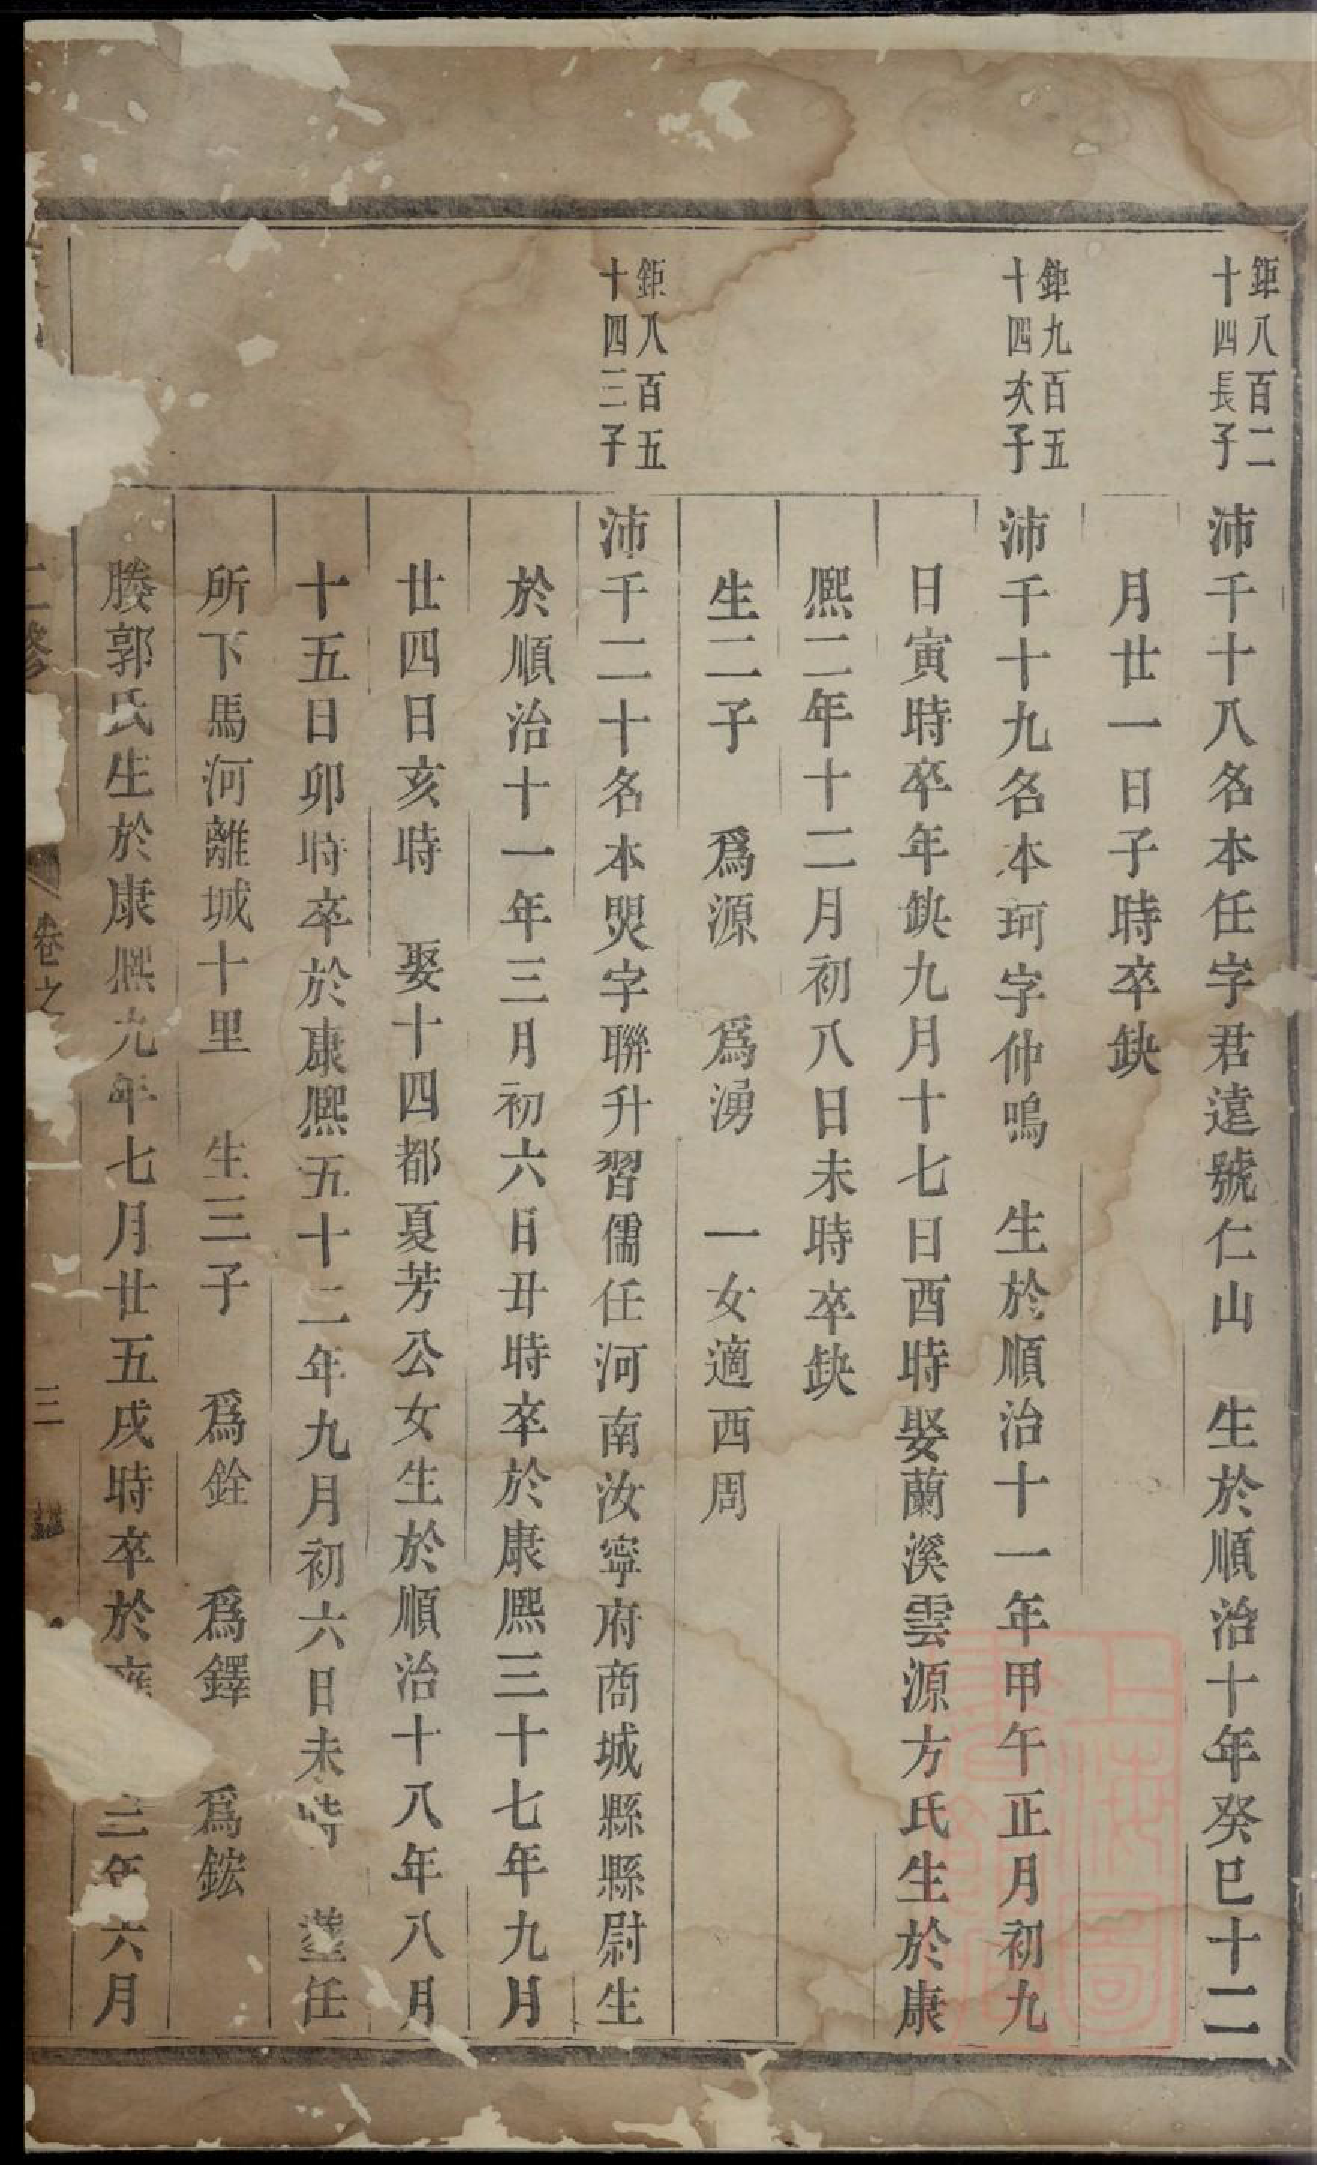 鉅八百二
十四長子
沛千十八名本任字君遠號仁山　生於順治十年癸巳十二
月廿一日子時卒缺
鉅九百五
十四次子
沛千十九名本珂字仲鳴　生於順治十一年甲午正月初九
日寅時卒年缺九月十七日酉時娶蘭溪雲源方氏生於康
熙二年十二月初八日未時卒缺
生二子　爲源　爲湧　一女適西周
鉅八百五
十四三子
沛千二十名本煚字聯升習儒任河南汝寧府商城縣縣尉生
於順治十一年三月初六日丑時卒於康熙三十七年九月
廿四日亥時　娶十四都夏芳公女生於順治十八年八月
十五日卯時卒於康熙五十二年九月初六日未時　塟任
所下馬河離城十里　生三子　爲銓　爲鐸　爲鋐
媵郭氏生於康熙九年七月廿五戌時卒於雍　三年六月
卷之
三
上海圖書館藏